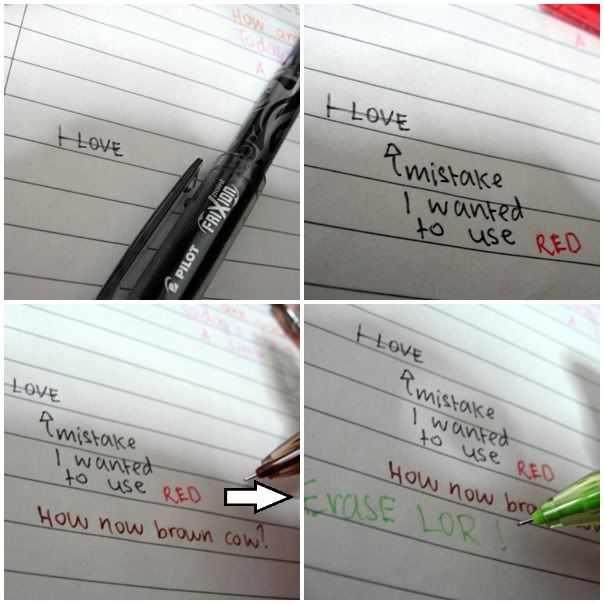 How
Today
A
I LOVE
PILOT
FRIXION
point
A
I LOVE
mistake
I wanted
to use RED
LOVE
mistake
I wanted
to use RED
How now brown cow?
A
I LOVE
mistake
I wanted
to use RED
How now bro
Erase LOR!